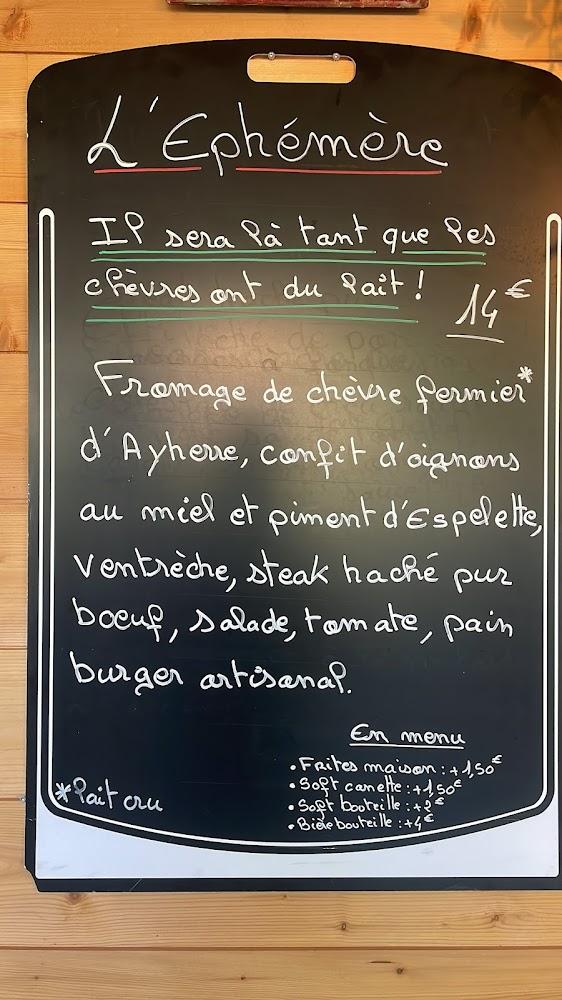 L'Ephémère
Il sera là tant que les
chèvres ont du lait !
14€
Fromage de chèvre fermier*
d'Ayherre, confit d'oignons
au miel et piment d'Espelette,
ventrèche, steak haché pur
boeuf, salade, tomate, pain
burger artisanal.
En menu
• Frites maison : +1,50€
• Soft canette : +1,50€
• Soft bouteille : +2€
• Bière bouteille : +4€
*lait cru